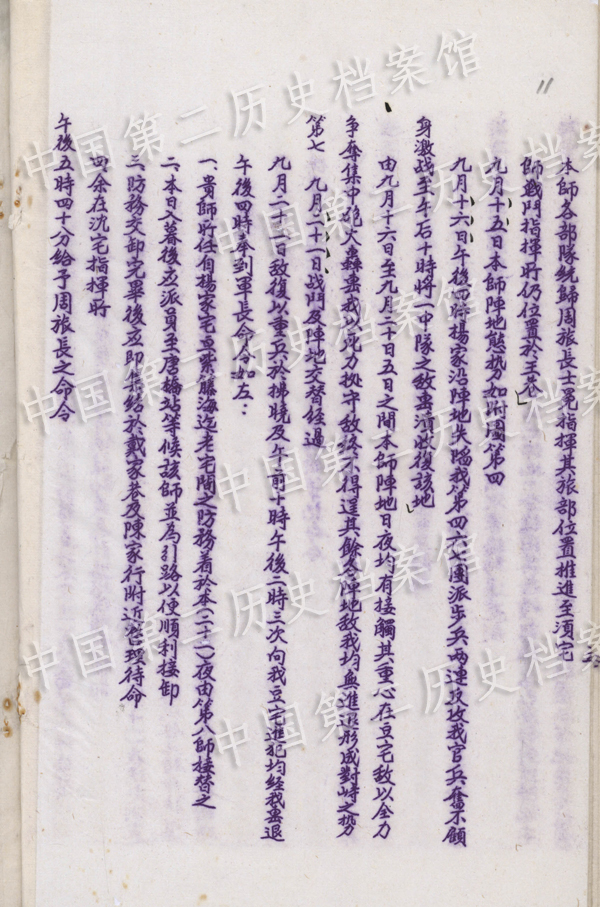 11
本師各部隊統歸周旅長士冕指揮其旅部位置推進至須宅
師戰鬥指揮所仍位置於王巷
九月十五日本師陣地態勢如附圖第四
九月十六日午後四時楊家沿陣地失陷我第四六七團派步兵兩連反攻我官兵奮不顧
身激战至午后十時將一中隊之敵擊潰收復該地
由九月十六日至九月二十日五日之間本師陣地日夜均有接觸其重心在豆宅敵以全力
爭奪集中砲火轟擊我以死力扼守敵終不得逞其餘各陣地敵我均無進退形成對峙之勢
第七 九月二十一日战鬥及陣地交替經過
九月二十一日敌復以重兵於拂曉及午前十時午後二時三次向我豆宅進犯均經我擊退
午後四時奉到軍長命令如左：
一、貴師所任自楊家宅豆紫藤海迄老宅間之防務着於本(二十一)夜由第八師接替之
二、本日入暮後应派員至唐橋站等候該師並為引路以便順利接卸
三、防務交卸完畢後应即集結於戴家巷及陳家行附近整理待命
四、余在沈宅指揮所
午後五時四十分給予周旅長之命令
中国第二历史档案馆
中国第二历史档案馆
中国第二历史档案馆
中国第二历史档案馆
中国第二历史档案馆
中国第二历史档案馆